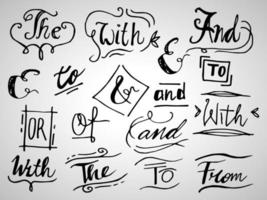 The With And
& to & and TO
OR Of and With
With The TO From